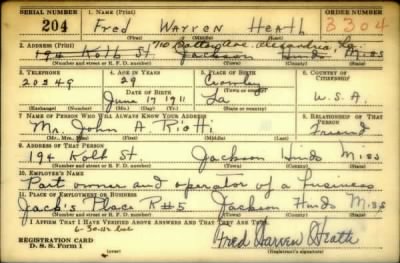 SERIAL NUMBER 1. NAME (Print) ORDER NUMBER
204 Fred Warren Heath 3304
(First) (Middle) (Last)
2. ADDRESS (Print)
194 Kolb St. 710 Ave. Alexandria, La. Jackson Hinds Miss
(Number and street or R. F. D. number) (Town) (County) (State)
3. TELEPHONE 4. AGE IN YEARS 5. PLACE OF BIRTH 6. COUNTRY OF CITIZENSHIP
20249 29 Crowley
DATE OF BIRTH (Town or county)
June 17 1911 La U.S.A.
(Exchange) (Number) (Mo.) (Day) (Yr.) (State or country)
7. NAME OF PERSON WHO WILL ALWAYS KNOW YOUR ADDRESS 8. RELATIONSHIP OF THAT PERSON
Mr. John A Friend
(Mr., Mrs., Miss) (First) (Middle) (Last)
9. ADDRESS OF THAT PERSON
194 Kolb St. Jackson Hinds Miss
(Number and street or R. F. D. number) (Town) (County) (State)
10. EMPLOYER'S NAME
Part owner and operator of a business
11. PLACE OF EMPLOYMENT OR BUSINESS
Jack's Place R#5 Jackson Hinds Miss
(Number and street or R. F. D. number) (Town) (County) (State)
I AFFIRM THAT I HAVE VERIFIED ABOVE ANSWERS AND THAT THEY ARE TRUE.
REGISTRATION CARD
D. S. S. Form 1 (over) Fred Warren Heath